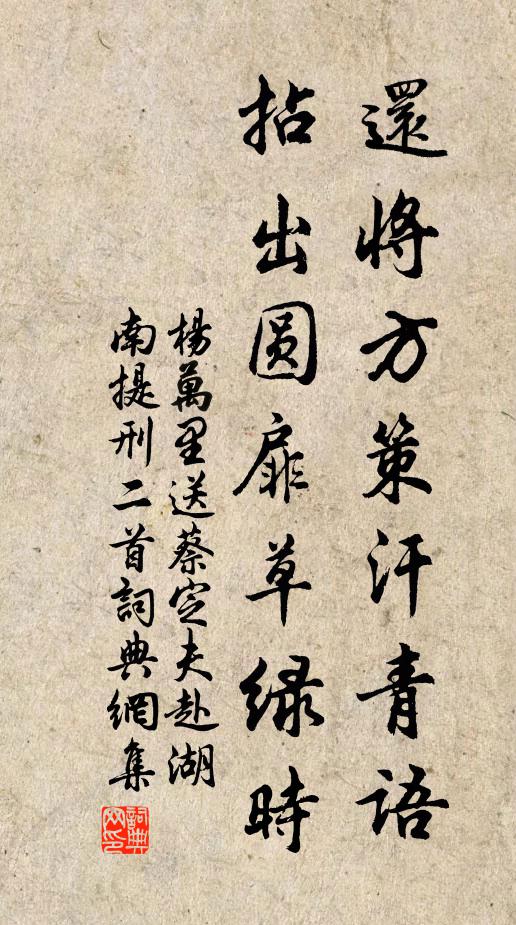 還將方策汗青語
拈出圆扉草緑時
楊萬里送蔡定夫赴湖
南提刑二首詞典網集
詞典
网印